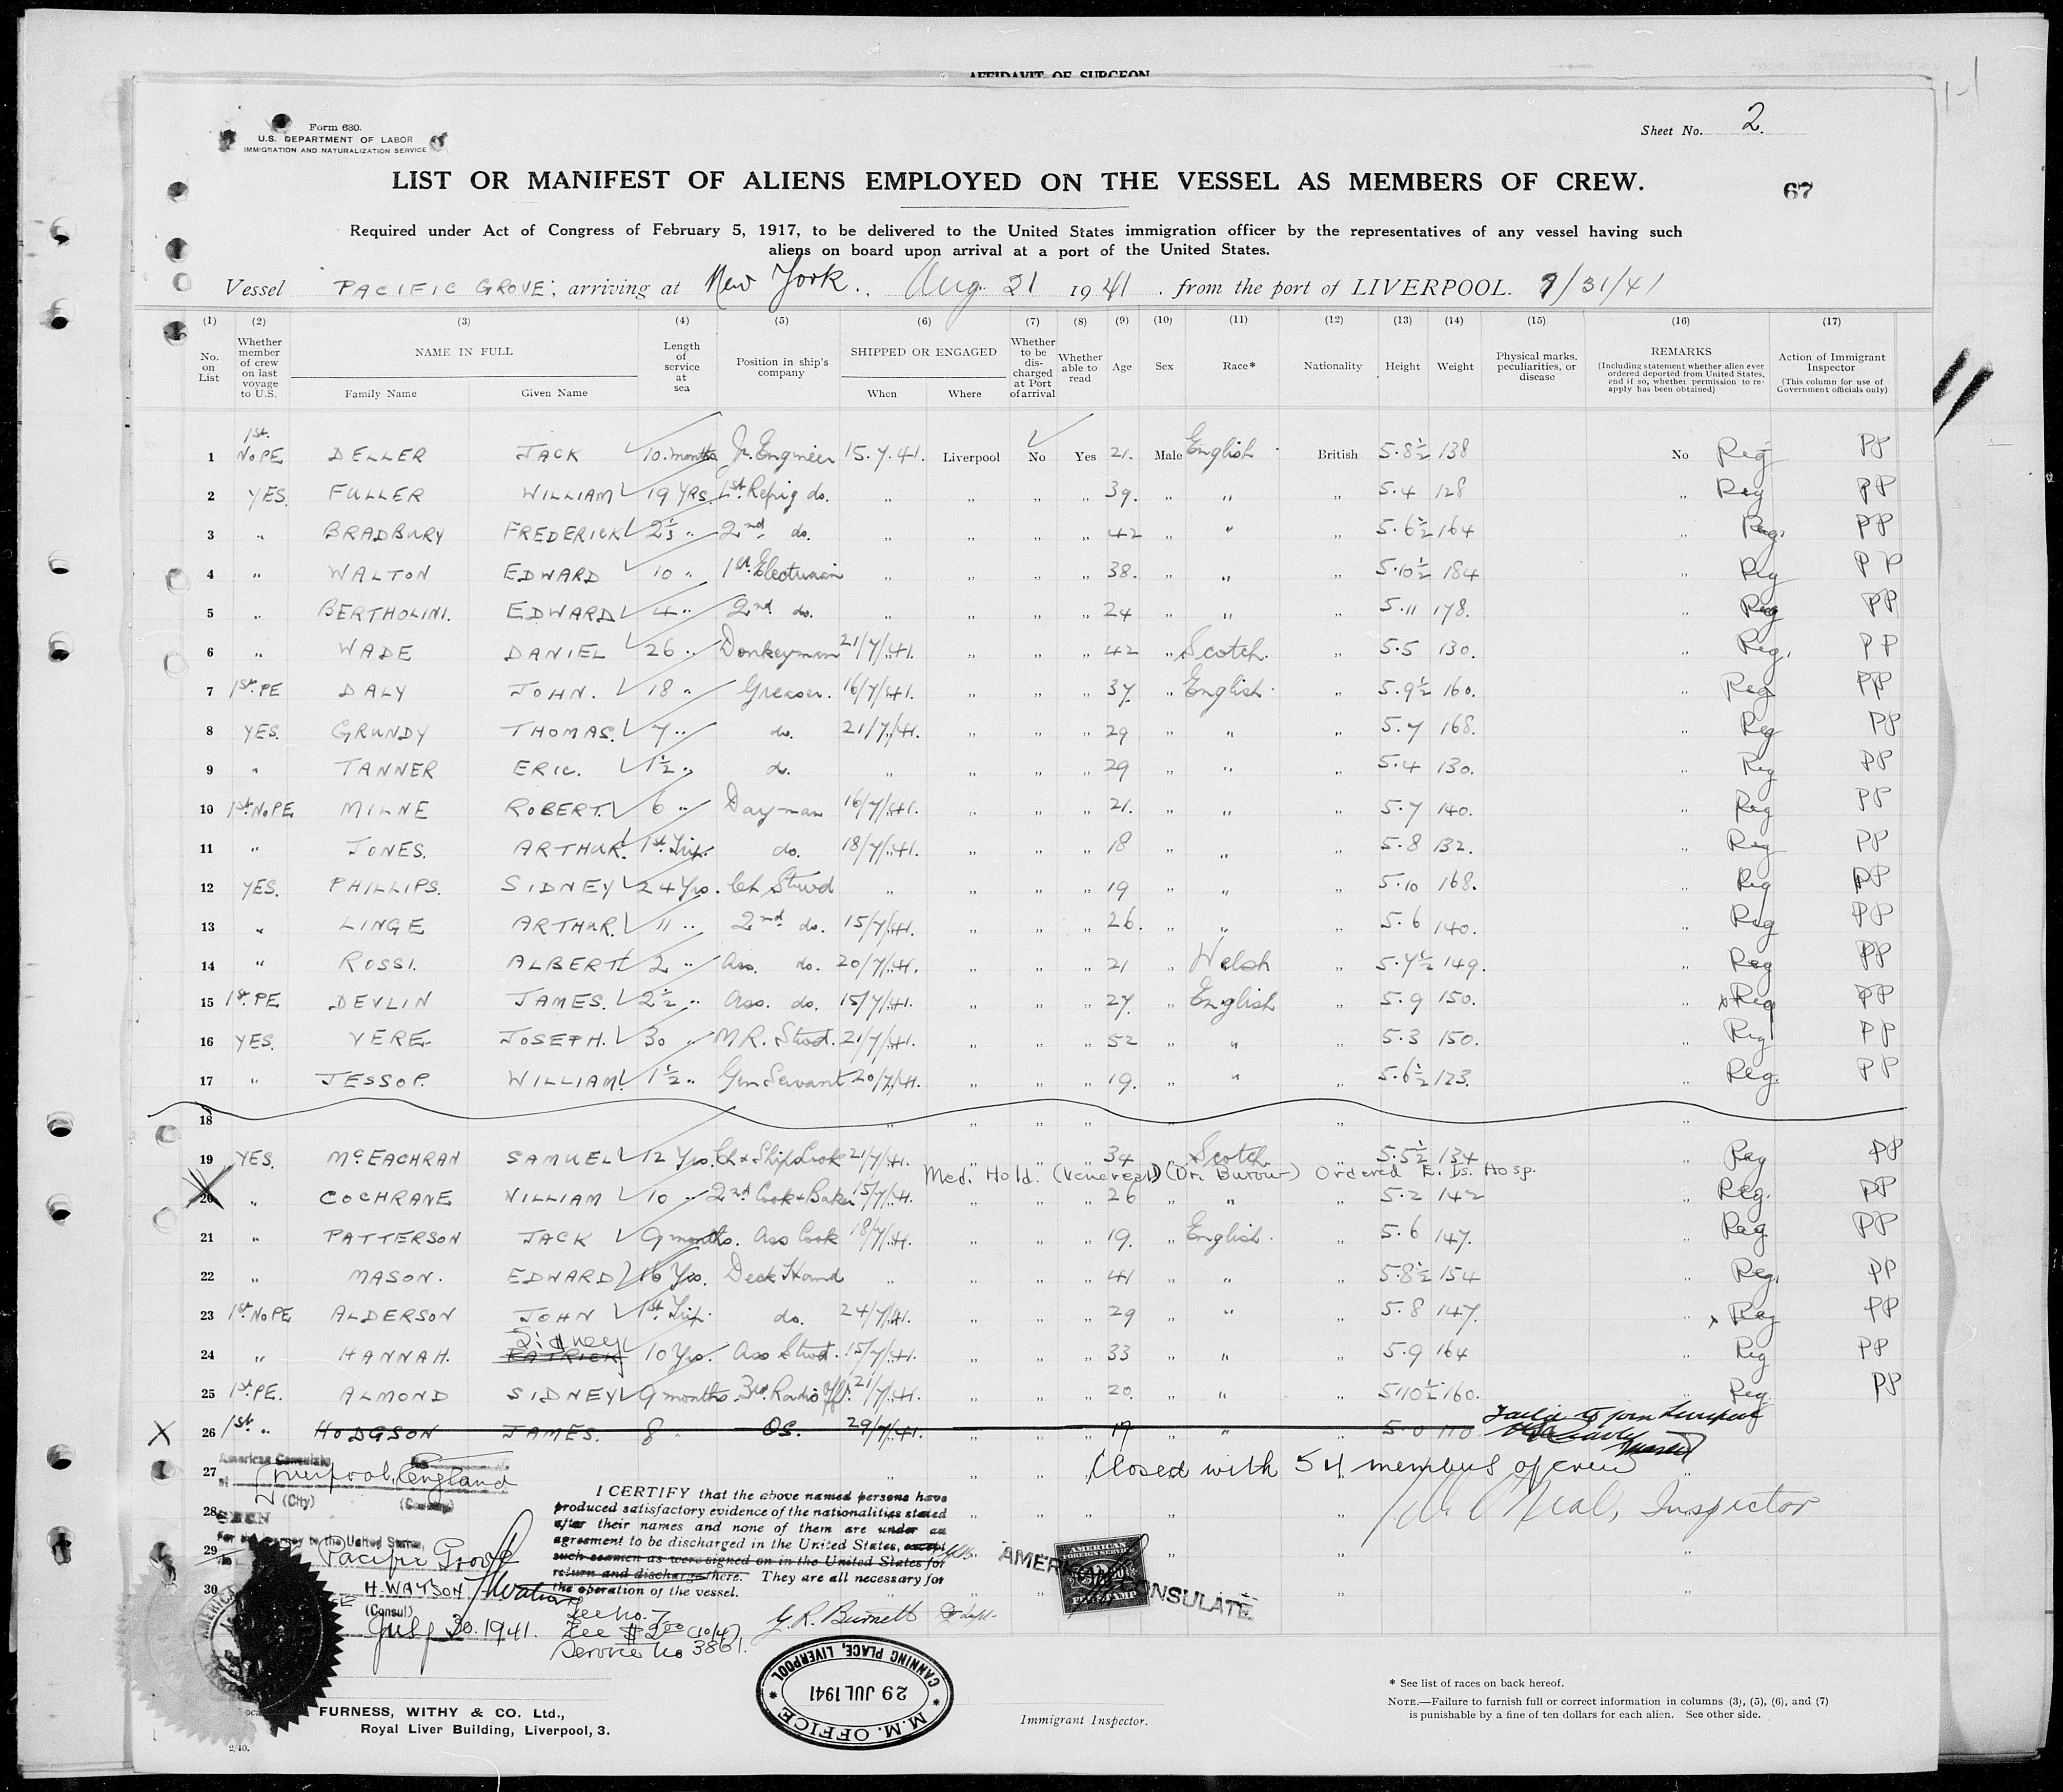 AFFIDAVIT OF SURGEON
Form 680.
U.S. DEPARTMENT OF LABOR
IMMIGRATION AND NATURALIZATION SERVICE
Sheet No. 2.
LIST OR MANIFEST OF ALIENS EMPLOYED ON THE VESSEL AS MEMBERS OF CREW.
67
Required under Act of Congress of February 5, 1917, to be delivered to the United States immigration officer by the representatives of any vessel having such
aliens on board upon arrival at a port of the United States.
Vessel PACIFIC GROVE, arriving at New York., Aug. 21 1941. from the port of LIVERPOOL. 7/31/41
(1) (2) (3) (4) (5) (6) (7) (8) (9) (10) (11) (12) (13) (14) (15) (16) (17)
No. on List
Whether member of crew on last voyage to U.S.
NAME IN FULL
Family Name Given Name
Length of service at sea
Position in ship's company
SHIPPED OR ENGAGED
When Where
Whether to be discharged at Port of arrival
Whether able to read
Age Sex Race* Nationality Height Weight
Physical marks, peculiarities, or disease
REMARKS
(Including statement whether alien ever ordered deported from United States, and if so, whether permission to re-apply has been obtained)
Action of Immigrant Inspector
(This column for use of Government officials only)
1 1st. No PE DELLER JACK 10. months Jr. Engineer 15.7.41. Liverpool No Yes 21. Male English British 5.8½ 138 No Reg PP
2 YES. FULLER WILLIAM 19 YRS. 1st. Refrig do. „ „ „ „ 39. „ „ „ 5.4 128 „ Reg PP
3 „ BRADBURY FREDERICK 2⅓ „ 2nd do. „ „ „ „ 42 „ „ „ 5.6½ 164 „ Reg. PP
4 „ WALTON EDWARD 10 „ 1st. Electrician „ „ „ „ 38. „ „ „ 5.10½ 184 „ Reg PP
5 „ BERTHOLINI. EDWARD 4 „ 2nd do. „ „ „ „ 24 „ „ „ 5.11 178. „ Reg PP
6 „ WADE DANIEL 26 „ Donkeyman 21/7/41. „ „ „ 42 „ Scotch. „ 5.5 130. „ Reg. PP
7 1st. PE DALY JOHN. 18 „ Greaser. 16/7/41. „ „ „ 37. „ English. „ 5.9½ 160. „ Reg PP
8 YES. GRUNDY THOMAS. 7 „ do. 21/7/41. „ „ „ 29 „ „ „ 5.7 168. „ Reg PP
9 „ TANNER ERIC. 1½ „ do. „ „ „ „ 29 „ „ „ 5.4 130. „ Reg PP
10 1st. No PE MILNE ROBERT. 6 „ Dayman 16/7/41. „ „ „ 21. „ „ „ 5.7 140. „ Reg PP
11 „ JONES. ARTHUR. 1st. Trip. do. 18/7/41. „ „ „ 18 „ „ „ 5.8 132. „ Reg PP
12 YES. PHILLIPS. SIDNEY 24 Yrs. Ch Stwd „ „ „ „ 19 „ „ „ 5.10 168. „ Reg PP
13 „ LINGE ARTHUR. 11 „ 2nd do. 15/7/41. „ „ „ 26. „ „ „ 5.6 140. „ Reg PP
14 „ ROSSI. ALBERT 2 „ Ass. do. 20/7/41. „ „ „ 21 „ Welsh „ 5.7½ 149. „ Reg PP
15 1st. PE DEVLIN JAMES. 2½ „ Ass. do. 15/7/41. „ „ „ 27. „ English „ 5.9 150. „ x Reg PP
16 YES. VERE JOSEPH. 30 „ M.R. Stwd. 21/7/41. „ „ „ 52 „ „ „ 5.3 150. „ Reg PP
17 „ JESSOP. WILLIAM. 1½ „ Gen Servant 20/7/41. „ „ „ 19. „ „ „ 5.6½ 123. „ Reg. PP
18 „ „ „ „ „ „ „
19 YES. McEACHRAN SAMUEL 12 Yrs. Ch & Ships Cook 21/7/41. „ „ „ 34 „ Scotch. „ 5.5½ 134 „ Reg PP
Med. Hold. (Venereal) (Dr. Burow) Ordered E. Is. Hosp.
20 „ COCHRANE WILLIAM 10 „ 2nd Cook & Baker 15/7/41. „ „ „ 26 „ „ „ 5.2 142 „ Reg. PP
21 „ PATTERSON JACK 9 months. Ass Cook 18/7/41. „ „ „ 19. „ English. „ 5.6 147. „ Reg PP
22 „ MASON. EDWARD 16 Yrs. Deck Hand „ „ „ „ 41 „ „ „ 5.8½ 154 „ Reg. PP
23 1st. No PE ALDERSON JOHN 1st. Trip. do. 24/7/41. „ „ „ 29 „ „ „ 5.8 147. „ x Reg PP
Sidney
24 „ HANNAH. PATRICK 10 Yrs. Ass Stwd. 15/7/41. „ „ „ 33 „ „ „ 5.9 164 „ Reg PP
25 1st. PE. ALMOND SIDNEY 9 months. 3rd. Radio Off. 21/7/41. „ „ „ 20. „ „ „ 5.10½ 160. „ Reg. PP
X 26 1st. „ HODGSON JAMES. 8 „ OS. 29/7/41. „ „ „ 17 „ „ „ 5.0 110 Failed to join Liverpool
27 Closed with 54 members of crew
28 Inspector
29
30
American Consulate
at Liverpool, England
(City) (Country)
SEEN
For the journey to the United States,
Pacific Grove
H. WATSON
(Consul)
July 30. 1941.
I CERTIFY that the above named persons have
produced satisfactory evidence of the nationalities stated
after their names and none of them are under an
agreement to be discharged in the United States, except
such seamen as were signed on in the United States for
return and discharge there. They are all necessary for
the operation of the vessel.
Fee No. 7
Service No 3861.
G. R. Burnett
AMERICAN CONSULATE
AMERICAN FOREIGN SERVICE
FEE STAMP
M.M. OFFICE
29 JUL 1941
CANNING PLACE, LIVERPOOL
FURNESS, WITHY & CO. Ltd.,
Royal Liver Building, Liverpool, 3.
2/40.
Immigrant Inspector.
* See list of races on back hereof.
NOTE.—Failure to furnish full or correct information in columns (3), (5), (6), and (7)
is punishable by a fine of ten dollars for each alien. See other side.